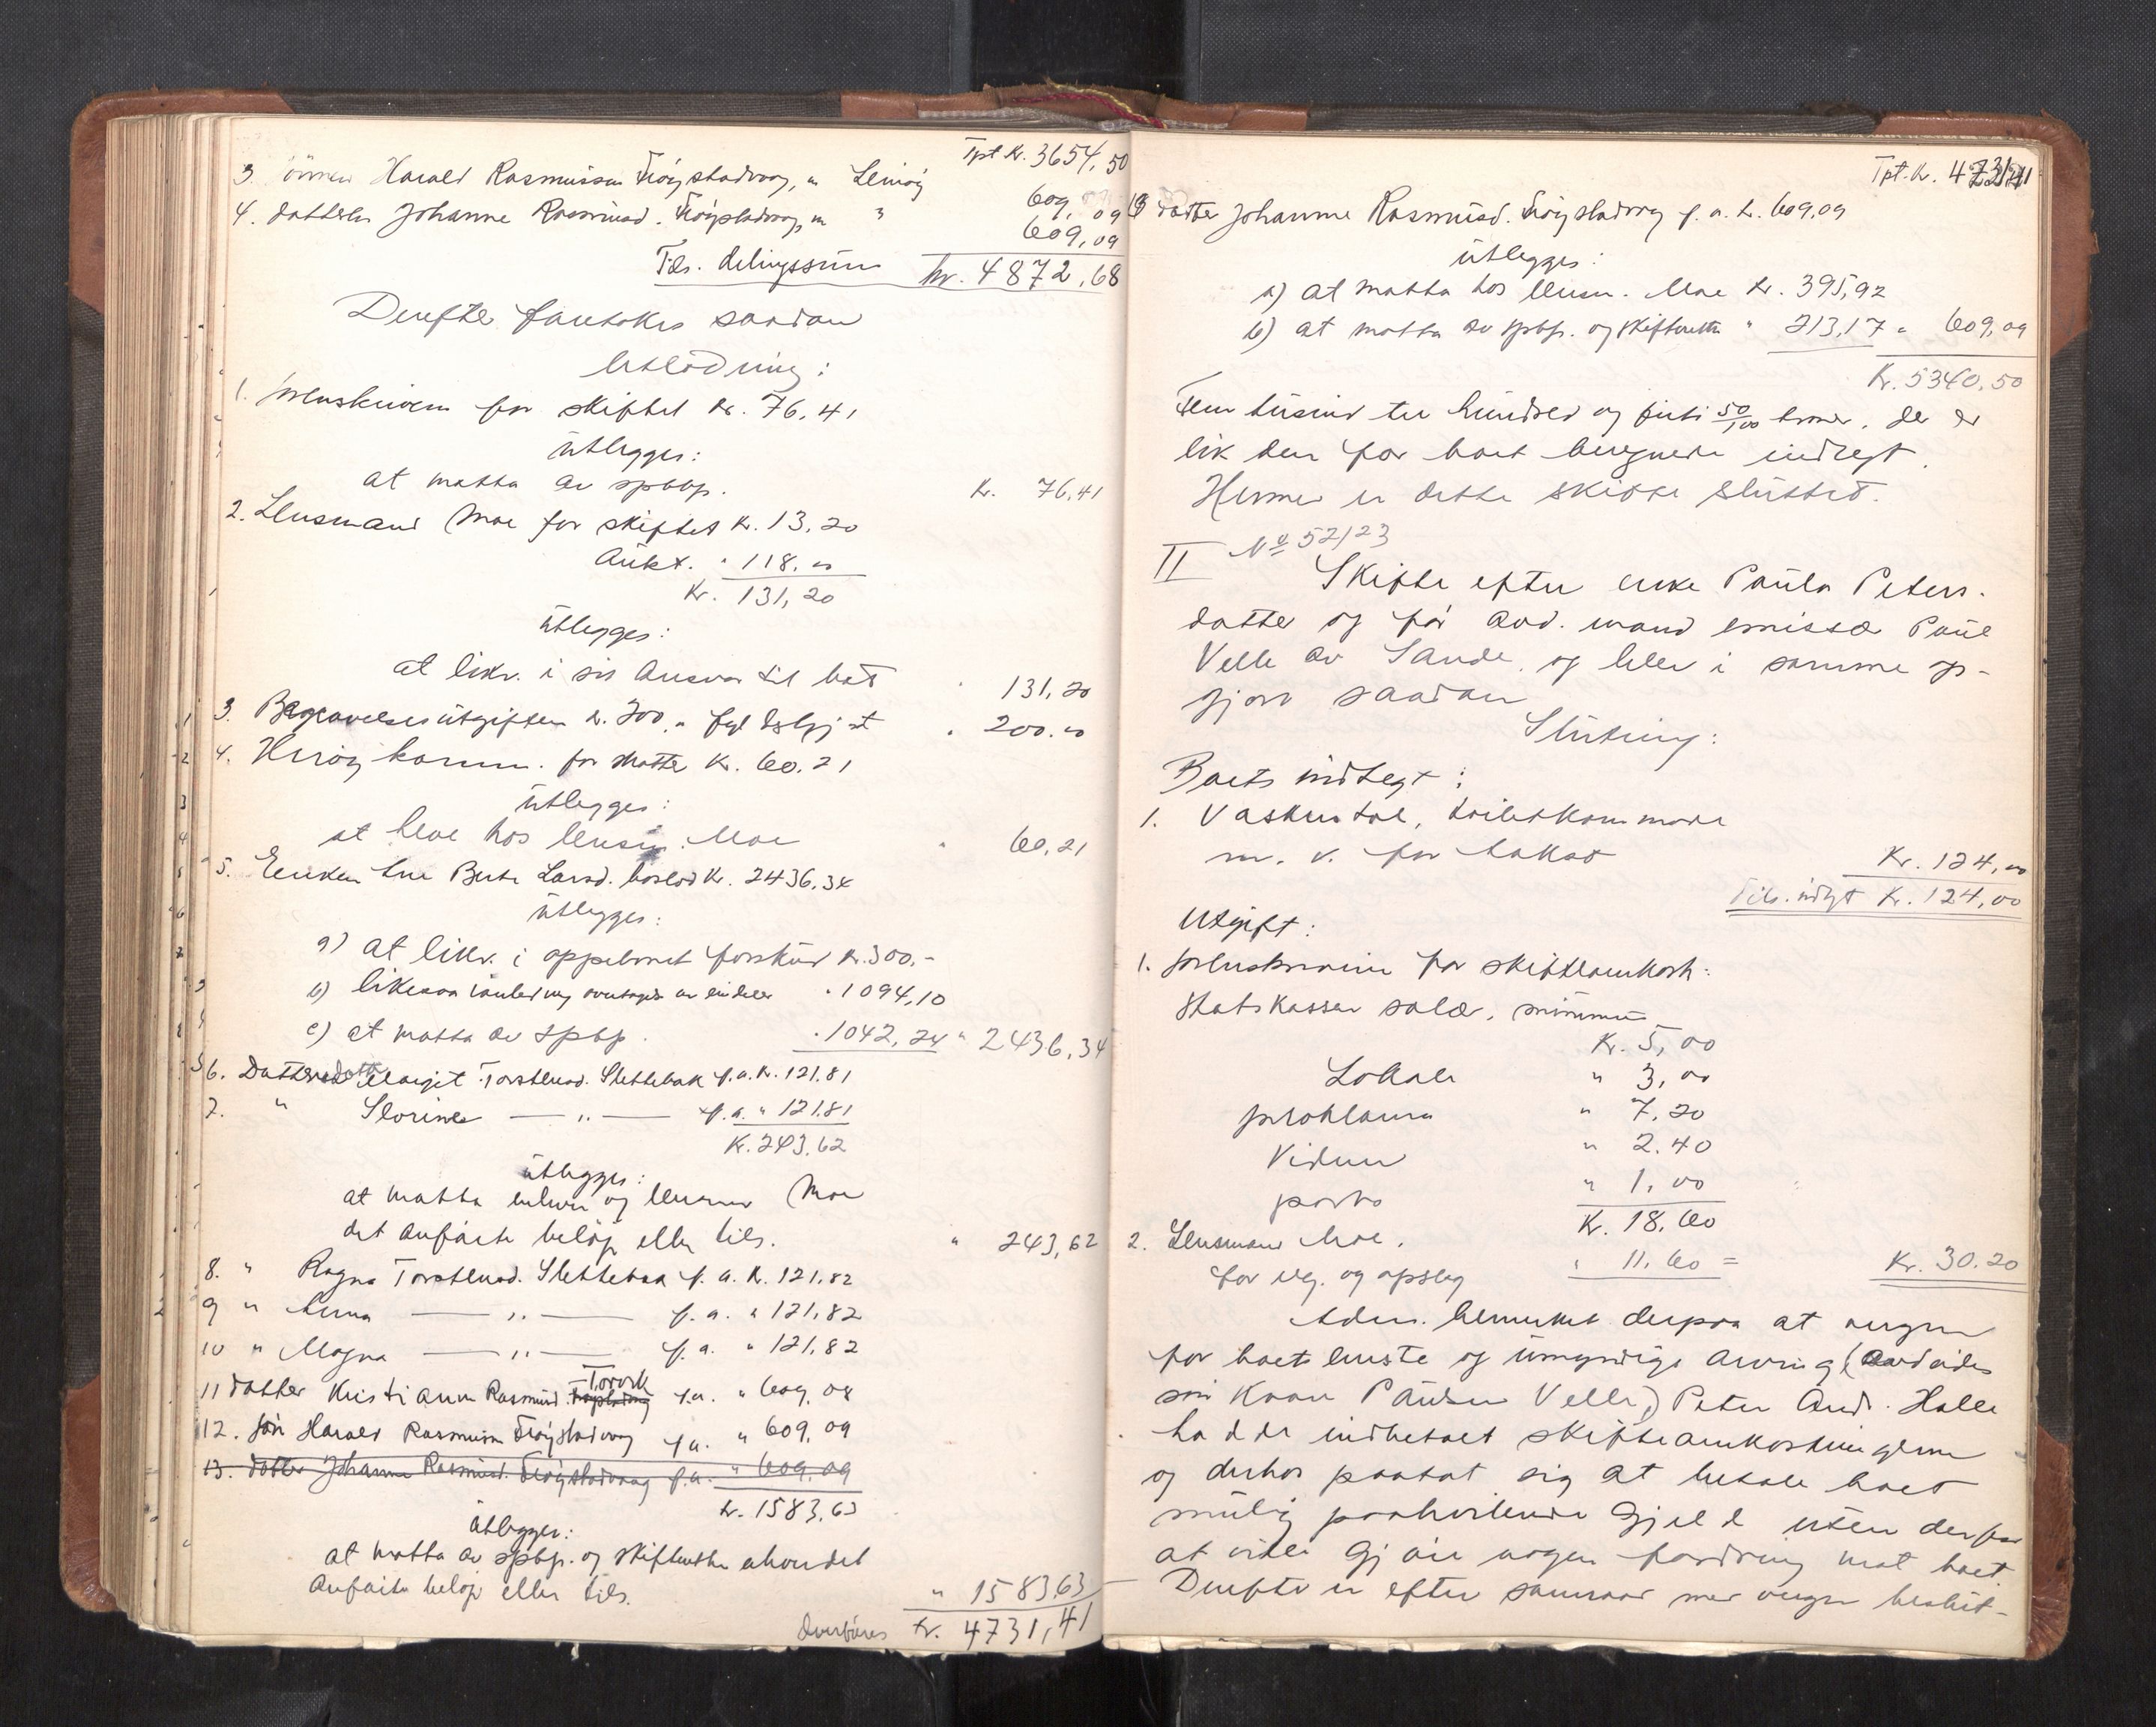 Tpt Kr. 3654,50
3. sönnen Harald Rasmussen Fröystadvaag, " Leinöy 609,09
4. datteren Johanne Rasmusd. Fröystadvaag, " " 609,09
Tils. delingssum kr. 4872,68
Derefter foretokes saadan
Utlodning:
1. Sorenskriveren for skiftet Kr. 76,41
utlegges:
at motta av spbkp. Kr. 76,41
2. Lensmand Moe for skiftet Kr. 13,20
Aukt. " 118.00
Kr. 131,20
utlegges:
at likv. i sit Ansvar til boet " 131,20
3. Begravelsesutgiften kr. 200," " 200.00
4. Heröy komm. for skatter Kr. 60.21
utlegges:
at heve hos lensm. Moe " 60,21
5. Enken Berte Larsd. boslod Kr. 2436,34
utlegges:
a) at likv. i oppebaaret forskud Kr. 300.-
b) likesaa " 1094,10
c) at motta av spbp. " 1042,24 " 2436,34
6. Datterdatter Margit Torsteinsd. Slettebak f.a. Kr. 121,81
7. " Slorine — " — f.a. " 121.81
K. 243,62
utlegges:
at motta Moe
det anførte beløp eller tils. " 243,62
8. " Ragna Torsteinsd. Slettebak f. a. K. 121,82
9 " Anna — " — f. a. " 121,82
10 " Magna — " — f. a. " 121,82
11 datter Kristianne Rasmusd. f.a. " 609,08
12. sön Harald Rasmussen Fröystadvaag f.a. " 609,09
13. datter Johanne Rasmusd. Fröystadvaag f.a. " 609,09
kr. 1583,63
utlegges:
at motta av spbp. og skifteretten
anførte beløp eller tils. " 1583,63
Overføres kr. 4731,41
Tpt. kr. 4731,41
13 datter Johanne Rasmusd. Fröystadvaag f. a. kr. 609,09
utlegges:
a) at motta hos lensm. Moe kr. 395,92
b) at motta av spbp. og skifteretten " 213,17 " 609,09
Kr. 5340,50
Fem tusind tre hundred og firti 50/100 kroner, der er
lik den for boet beregnede indtegt.
Hermed er dette skifte sluttet.
II No 52/23
Skifte efter enke Paula Peters-
datter og før avd. mand emissær Paul
Velle av Sande, og blev i samme op-
gjort saadan
Slutning:
Boets indtegt:
1. Vaskerstol, toiletkommode
m. v. for takst Kr. 124,00
Tils. indtgt Kr. 124,00
Utgift:
1. Sorenskriveren for skifteomkost.:
Statskassen salær, minimum
Kr. 5,00
Lokale " 3,00
proklama " 7,20
Vidner " 2.40
porto " 1,00
Kr. 18,60
2. Lensmand Moe,
for reg. og opslag " 11,60 = Kr. 30.20
Adm. bemerket derpaa at vergen
for boets eneste og umyndige arving (avdødes
sön Kaare Paulsen Velle) Peter Andr. Halle
hadde indbetalt skifteomkostningerne
og derhos paatat sig at betale boets
mulig paahvilende Gjeld uten derfor
at ville gjøre nogen fordring mot boet.
Derefter er efter samraad med vergen beslut-